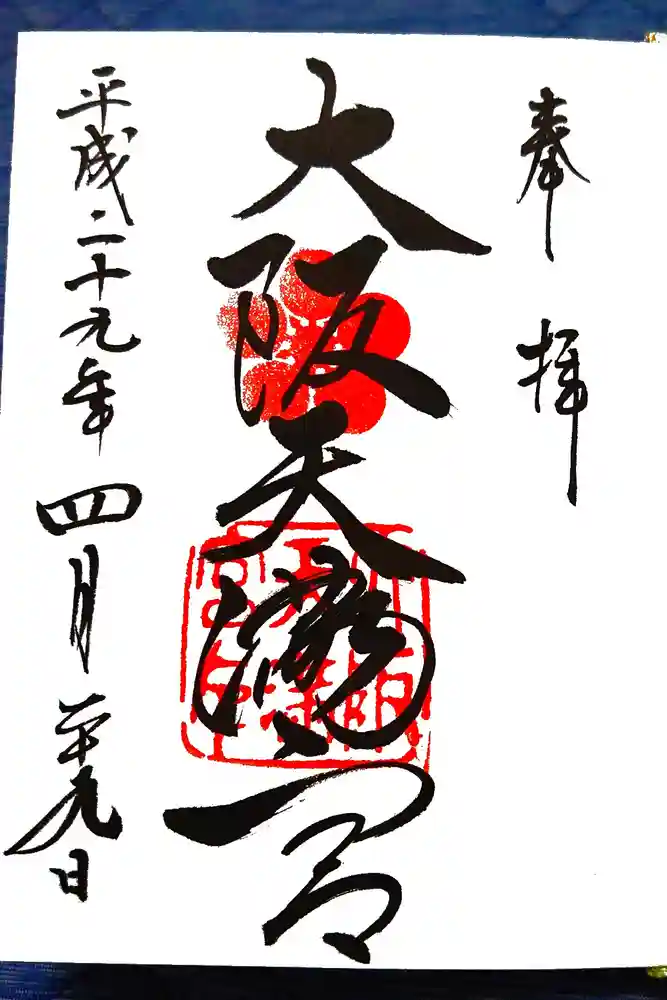 奉拝
大阪天満宮
平成二十九年四月廿九日